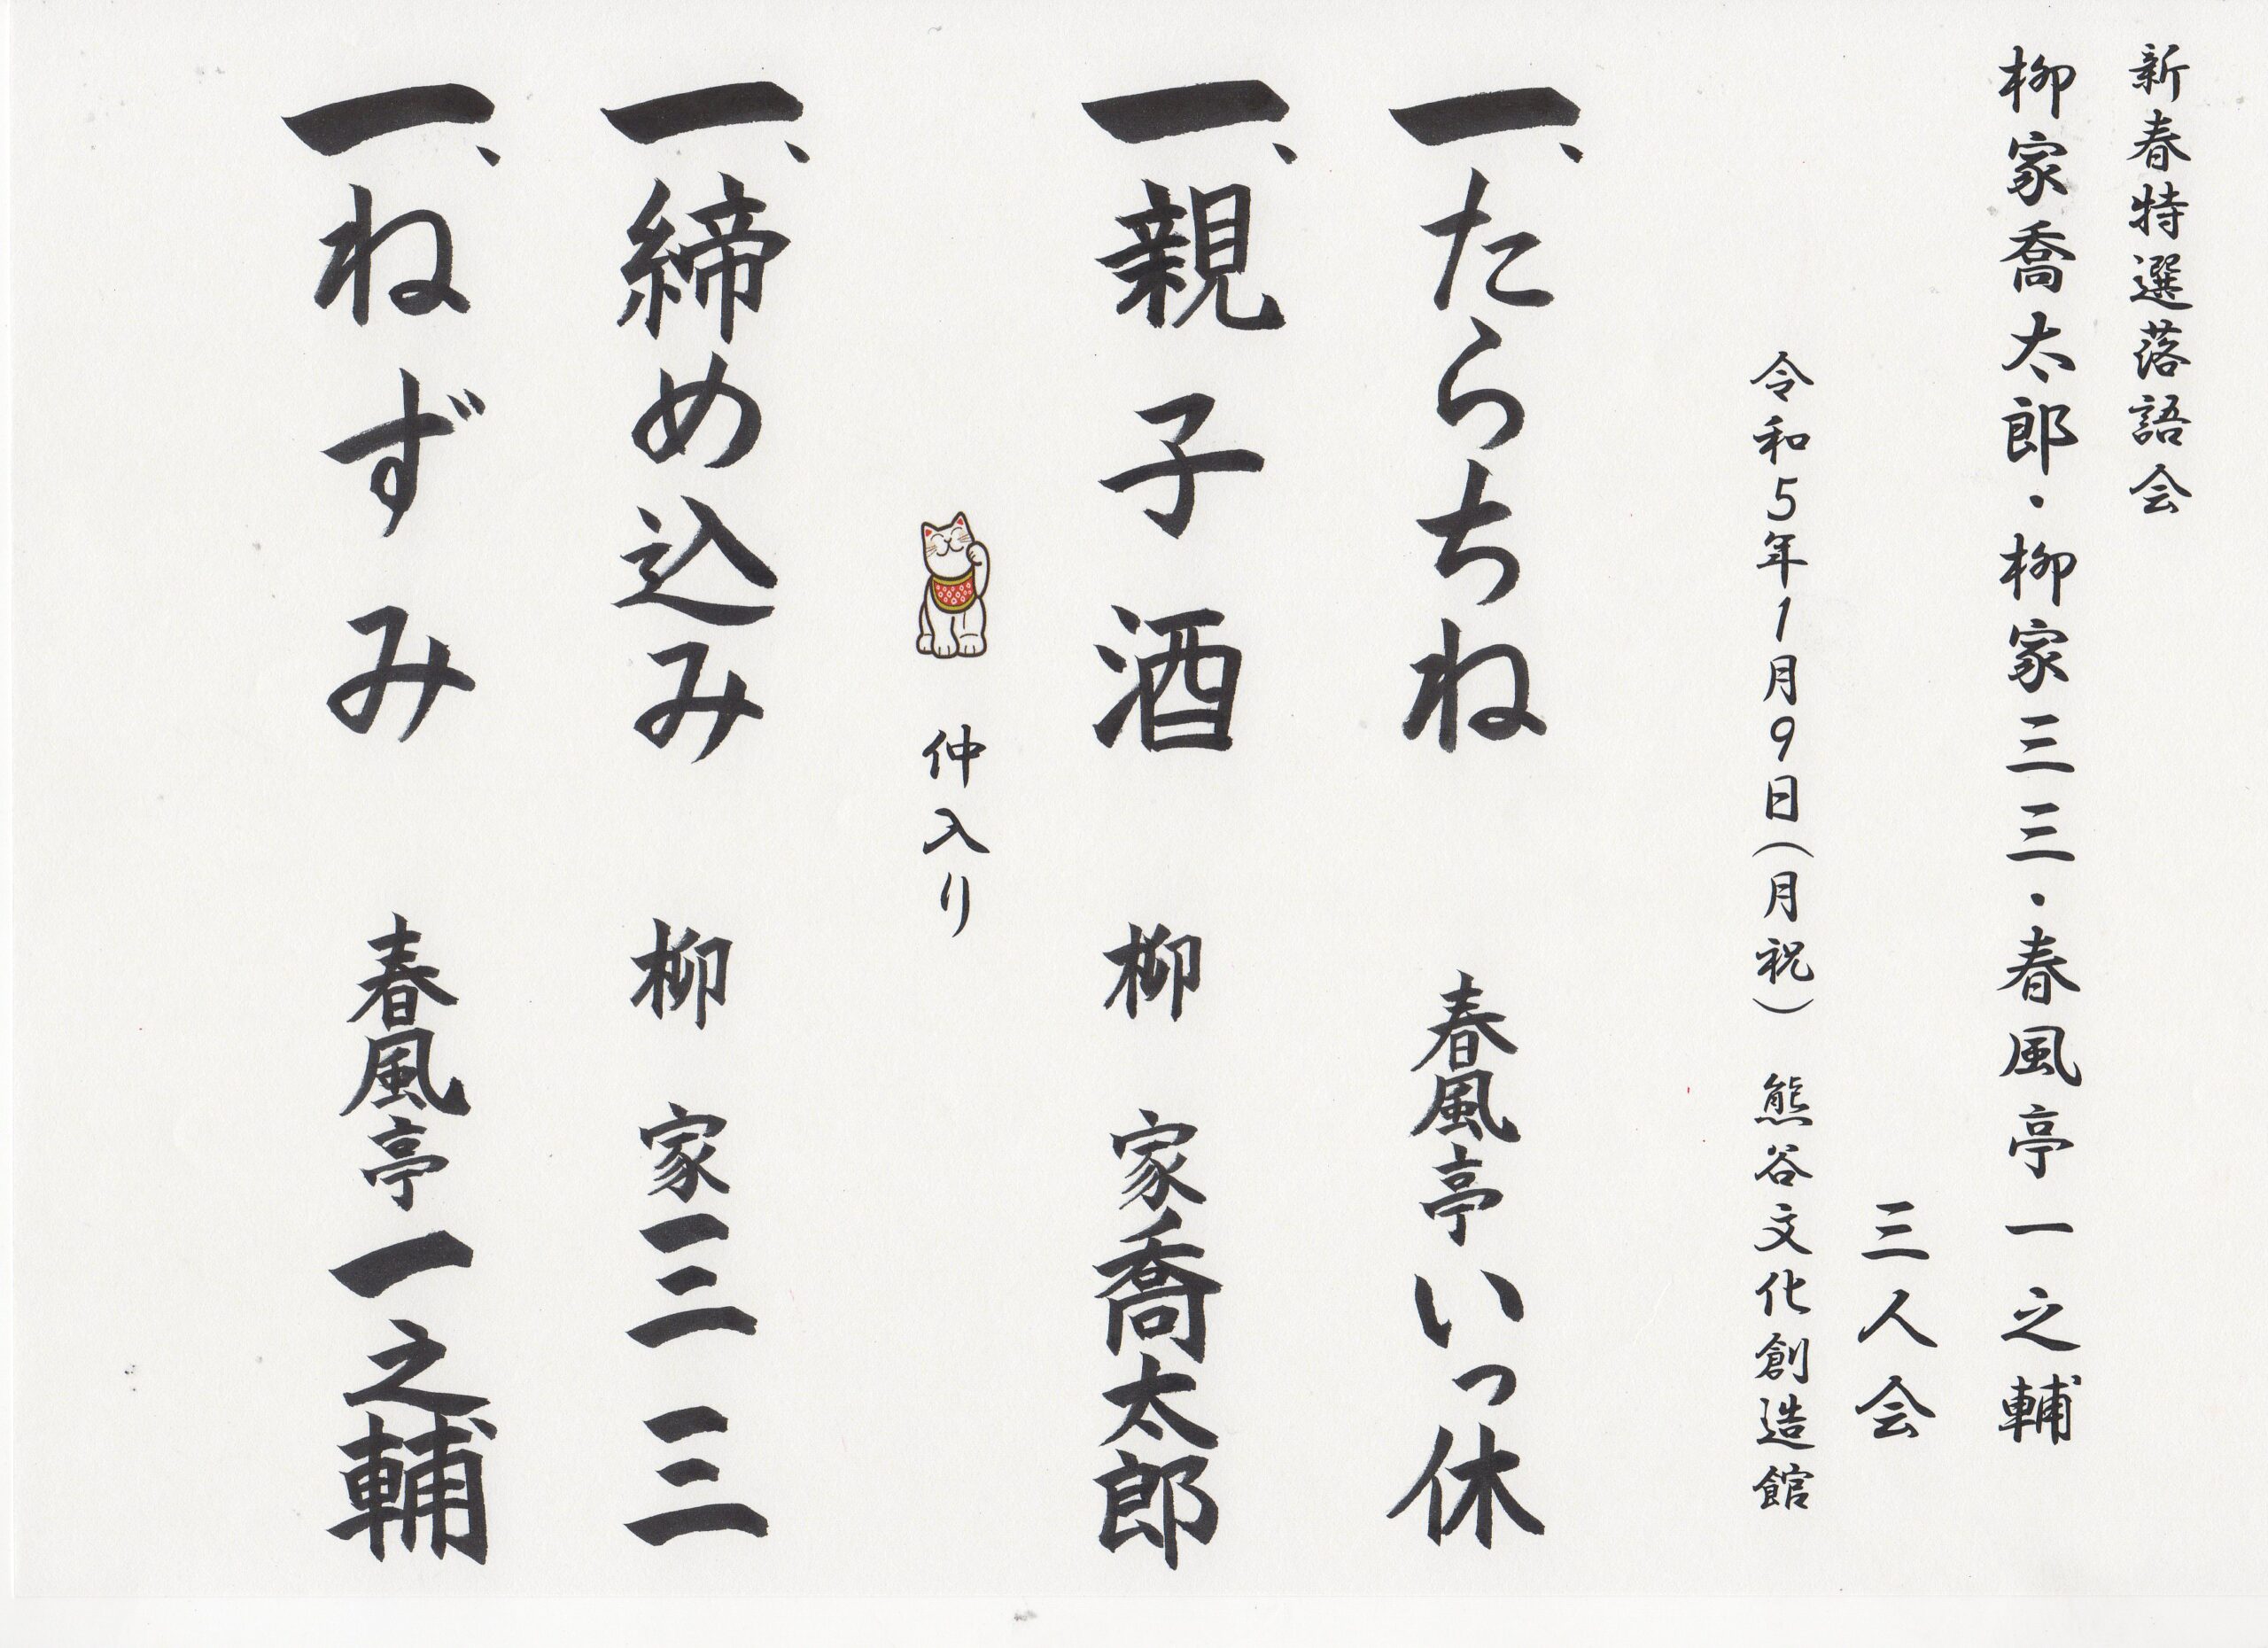 新春特選落語会
柳家喬太郎・柳家三三・春風亭一之輔
三人会
令和5年1月9日(月祝) 熊谷文化創造館
一、たらちね 春風亭いっ休
一、親子酒 柳家喬太郎
仲入り
一、締め込み 柳家三三
一、ねずみ 春風亭一之輔